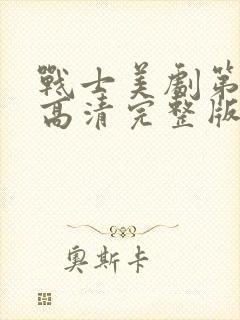 戰士美劇第
高清完整版
奧斯卡